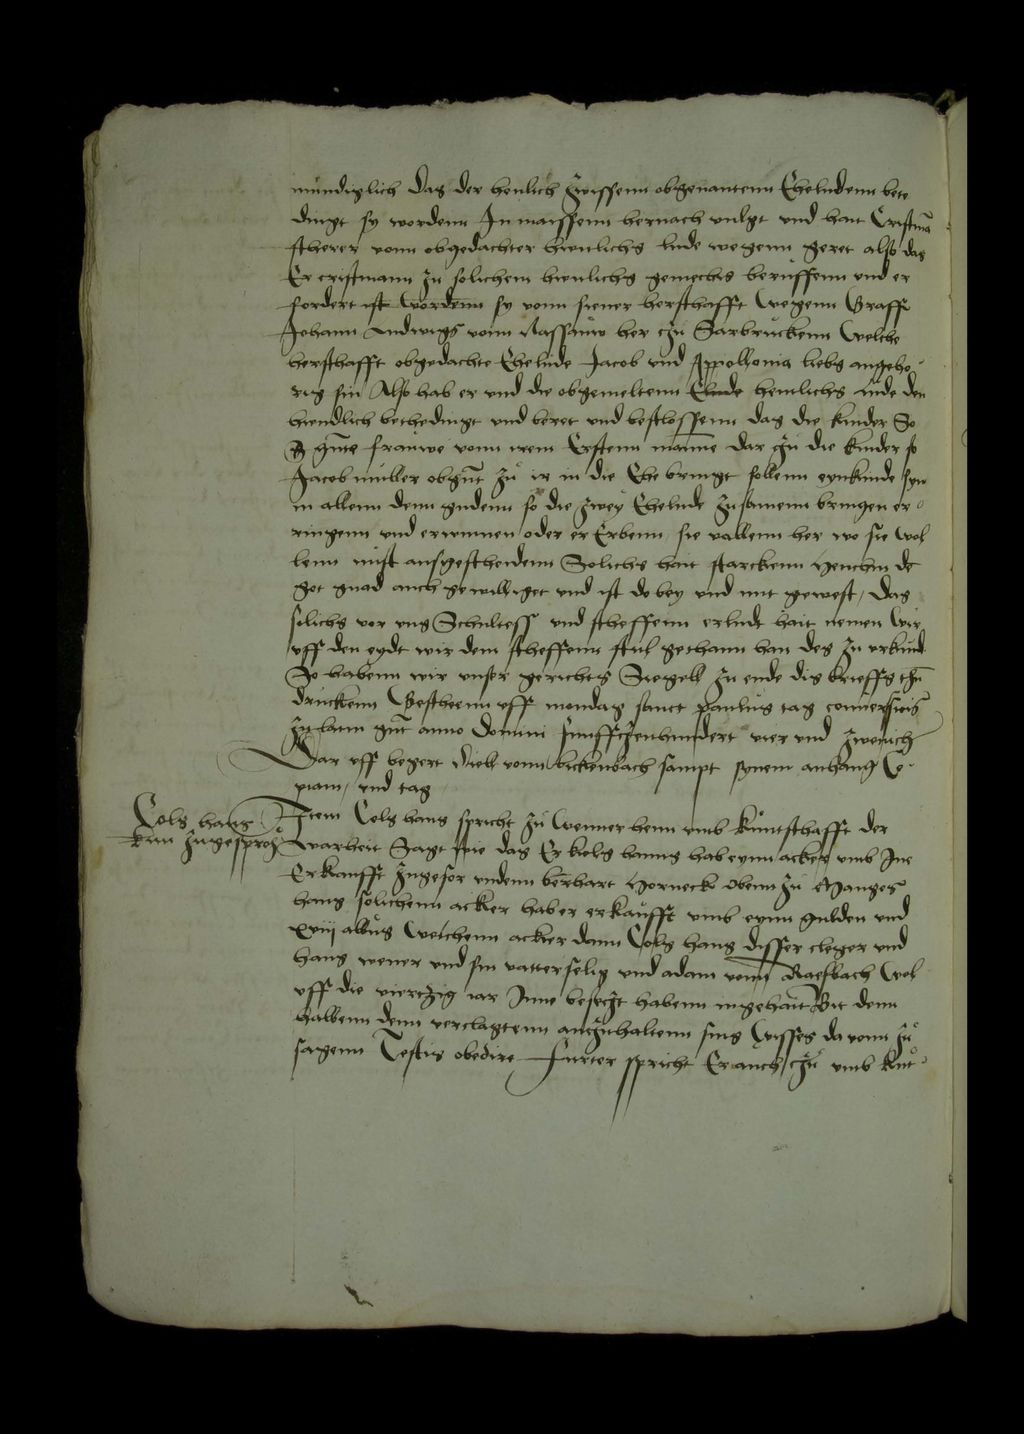 mundiglich das der heulich zwissenn obgenantenn Eheludenn bete
dingt sy wordenn In maissenn hernach volgt und hait Cristma
scherer vonn obgedachter hieulichs lude wegenn geret also das
Er cristmann zu solichem hieulichs gemechts beruffenn und er
fordert ist wordenn sy vonn siener herschafft wegenn Graff
Johann Ludwigs vonn Nassauw her zu Sarbruckenn welche
herschafft obgedachte Ehelude Jacob und Appollonia liebs angeho
rig sin Also hab er und die obgemeltenn Elude heulichs lude den
hieudlich bethedingt und beret und beslossenn das die kinder So
gnte frauwe vonn irem Erstenn manne dar zu die kinder so
Jacob muller obgnt zu ir in die Ehe bringt sollenn eynkinde syn
in allenn denn gudenn so die zwey Ehelude zusamenn bringen er
ringenn und erwinnen oder er Erbenn sie vallenn her wo sie wol
lenn nust ausgescheidenn Solichs hait starckenn Henchin de
got gnad auch gewilliget und ist do bey und mit gewest, das
solichs vor uns Schultess und scheffenn erludt hait nemen wir
uff den eydt wir dem scheffenn stul gethann han des zu urkund
So habenn wir unser gerichts Siegell zu ende dis brieffs thun
druckenn Gescheenn uff mondag sanct paulus tag conversionis
zu latin gnt anno domini funffzenhundert vier und zwentzich
Dar uff begert Dieb vonn bickenbach sampt synem anhang Co
piam, und tag
Cols hans
kun zugesproch
Item Cols hans spricht zu wenner henn umb kuntschafft der
warheit Sagt wie das Er kiols hanns hab eynn acker umb Ine
Erkaufft zugesor undenn bernhart Horneck obenn zu Manges
hans solichenn acker hab er erkaufft umb eynn gulden und
xviij albus welchenn acker dann Cols hans disser cleger und
hans wener und sin vatter selig und adam vonn Raesbach wol
uff die viertzig iar Inne besetzt habenn ingehait Bit denn
halbenn denn verclagtenn antzuhaltenn sins wisses da vonn zu
sagenn Testis obedire Furter spricht Er auch zu umb kut